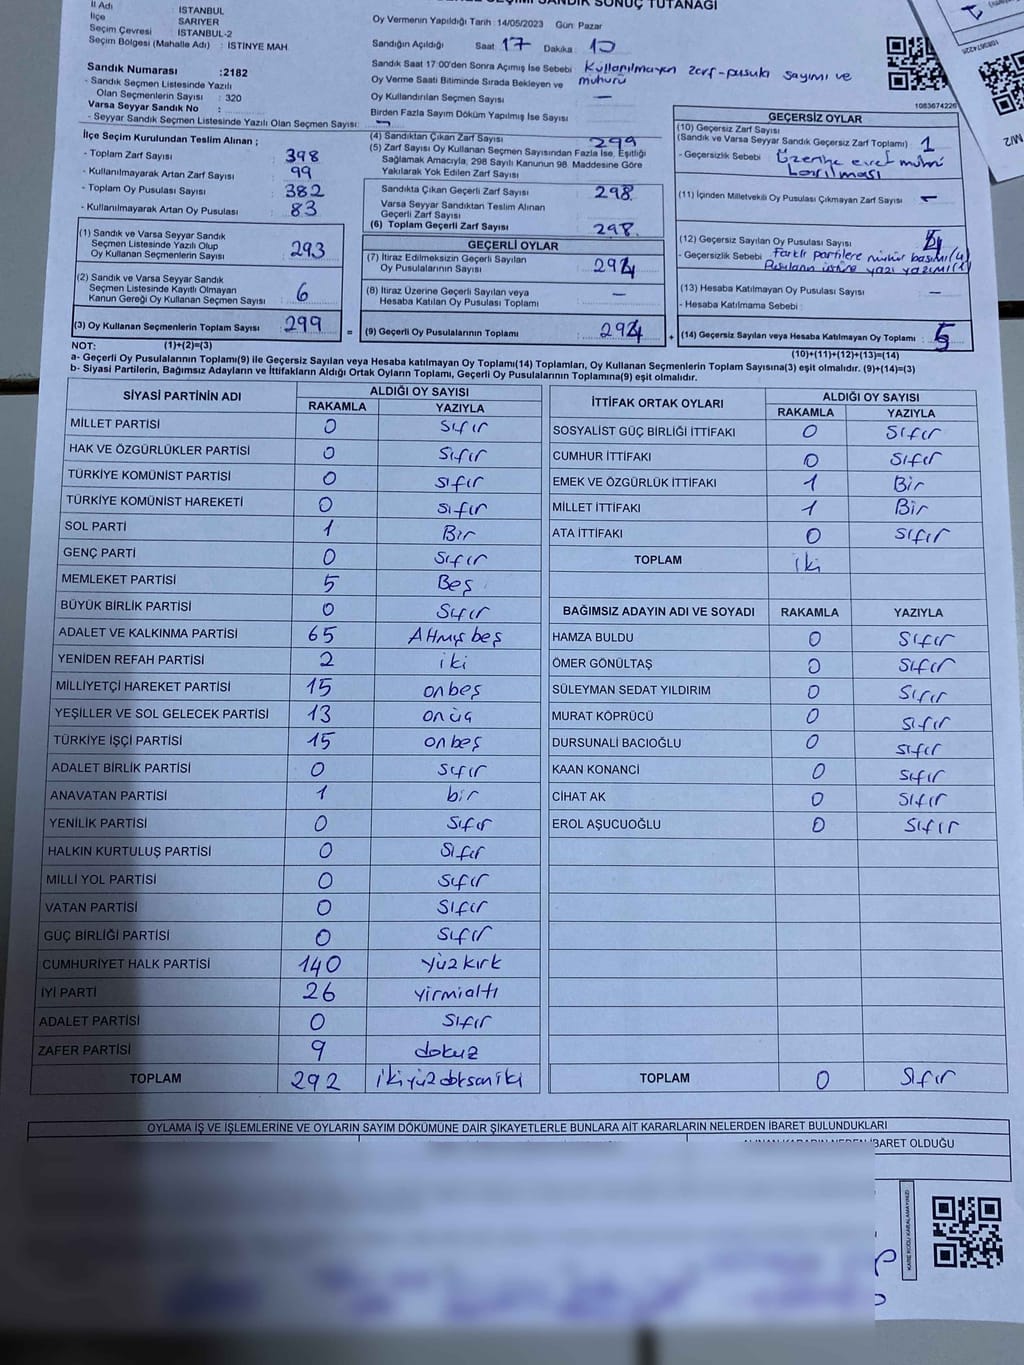 SEÇİMİ SANDIK SONUÇ TUTANAĞI
İl Adı : İSTANBUL
İlçe : SARIYER
Seçim Çevresi : İSTANBUL-2
Seçim Bölgesi (Mahalle Adı) : İSTİNYE MAH.
Oy Vermenin Yapıldığı Tarih : 14/05/2023 Gün: Pazar
Sandığın Açıldığı Saat 17 Dakika : 10
Sandık Saat 17:00'den Sonra Açılmış İse Sebebi Kullanılmayan zarf-pusula sayımı ve mühürü
Oy Verme Saati Bitiminde Sırada Bekleyen ve
Oy Kullandırılan Seçmen Sayısı —
Birden Fazla Sayım Döküm Yapılmış İse Sayısı
1083674226
Sandık Numarası :2182
- Sandık Seçmen Listesinde Yazılı
Olan Seçmenlerin Sayısı : 320
Varsa Seyyar Sandık No :
- Seyyar Sandık Seçmen Listesinde Yazılı Olan Seçmen Sayısı: —
İlçe Seçim Kurulundan Teslim Alınan ;
- Toplam Zarf Sayısı : 398
- Kullanılmayarak Artan Zarf Sayısı : 99
- Toplam Oy Pusulası Sayısı : 382
- Kullanılmayarak Artan Oy Pusulası : 83
(1) Sandık ve Varsa Seyyar Sandık
Seçmen Listesinde Yazılı Olup
Oy Kullanan Seçmenlerin Sayısı : 293
(2) Sandık ve Varsa Seyyar Sandık
Seçmen Listesinde Kayıtlı Olmayan
Kanun Gereği Oy Kullanan Seçmen Sayısı : 6
(3) Oy Kullanan Seçmenlerin Toplam Sayısı : 299
(4) Sandıktan Çıkan Zarf Sayısı 299
(5) Zarf Sayısı Oy Kullanan Seçmen Sayısından Fazla İse, Eşitliği
Sağlamak Amacıyla, 298 Sayılı Kanunun 98. Maddesine Göre
Yakılarak Yok Edilen Zarf Sayısı
Sandıkta Çıkan Geçerli Zarf Sayısı : 298
Varsa Seyyar Sandıktan Teslim Alınan
Geçerli Zarf Sayısı
(6) Toplam Geçerli Zarf Sayısı : 298
GEÇERLİ OYLAR
(7) İtiraz Edilmeksizin Geçerli Sayılan
Oy Pusulalarının Sayısı : 294
(8) İtiraz Üzerine Geçerli Sayılan veya
Hesaba Katılan Oy Pusulası Toplamı : —
= (9) Geçerli Oy Pusulalarının Toplamı : 294
GEÇERSİZ OYLAR
(10) Geçersiz Zarf Sayısı
(Sandık ve Varsa Seyyar Sandık Geçersiz Zarf Toplamı) : 1
- Geçersizlik Sebebi : Üzerine evet mührü basılması
(11) İçinden Milletvekili Oy Pusulası Çıkmayan Zarf Sayısı : —
(12) Geçersiz Sayılan Oy Pusulası Sayısı :
- Geçersizlik Sebebi : Farklı partilere mühür basımı (4)
Pusulanın üstüne yazı yazımı (1)
(13) Hesaba Katılmayan Oy Pusulası Sayısı : —
- Hesaba Katılmama Sebebi :
+ (14) Geçersiz Sayılan veya Hesaba Katılmayan Oy Toplamı : 5
NOT: (1)+(2)=(3)
(10)+(11)+(12)+(13)=(14)
a- Geçerli Oy Pusulalarının Toplamı(9) ile Geçersiz Sayılan veya Hesaba katılmayan Oy Toplamı(14) Toplamları, Oy Kullanan Seçmenlerin Toplam Sayısına(3) eşit olmalıdır. (9)+(14)=(3)
b- Siyasi Partilerin, Bağımsız Adayların ve İttifakların Aldığı Ortak Oyların Toplamı, Geçerli Oy Pusulalarının Toplamına(9) eşit olmalıdır.
SİYASİ PARTİNİN ADI ALDIĞI OY SAYISI
RAKAMLA YAZIYLA
MİLLET PARTİSİ 0 Sıfır
HAK VE ÖZGÜRLÜKLER PARTİSİ 0 Sıfır
TÜRKİYE KOMÜNİST PARTİSİ 0 sıfır
TÜRKİYE KOMÜNİST HAREKETİ 0 sıfır
SOL PARTİ 1 Bir
GENÇ PARTİ 0 Sıfır
MEMLEKET PARTİSİ 5 Beş
BÜYÜK BİRLİK PARTİSİ 0 Sıfır
ADALET VE KALKINMA PARTİSİ 65 Atmış beş
YENİDEN REFAH PARTİSİ 2 iki
MİLLİYETÇİ HAREKET PARTİSİ 15 onbeş
YEŞİLLER VE SOL GELECEK PARTİSİ 13 onüç
TÜRKİYE İŞÇİ PARTİSİ 15 onbeş
ADALET BİRLİK PARTİSİ 0 Sıfır
ANAVATAN PARTİSİ 1 bir
YENİLİK PARTİSİ 0 Sıfır
HALKIN KURTULUŞ PARTİSİ 0 Sıfır
MİLLİ YOL PARTİSİ 0 Sıfır
VATAN PARTİSİ 0 Sıfır
GÜÇ BİRLİĞİ PARTİSİ 0 Sıfır
CUMHURİYET HALK PARTİSİ 140 yüzkırk
İYİ PARTİ 26 yirmialtı
ADALET PARTİSİ 0 Sıfır
ZAFER PARTİSİ 9 dokuz
TOPLAM 292 ikiyüzdoksaniki
İTTİFAK ORTAK OYLARI ALDIĞI OY SAYISI
RAKAMLA YAZIYLA
SOSYALİST GÜÇ BİRLİĞİ İTTİFAKI 0 Sıfır
CUMHUR İTTİFAKI 0 Sıfır
EMEK VE ÖZGÜRLÜK İTTİFAKI 1 Bir
MİLLET İTTİFAKI 1 Bir
ATA İTTİFAKI 0 Sıfır
TOPLAM iki
BAĞIMSIZ ADAYIN ADI VE SOYADI RAKAMLA YAZIYLA
HAMZA BULDU 0 Sıfır
ÖMER GÖNÜLTAŞ 0 Sıfır
SÜLEYMAN SEDAT YILDIRIM 0 Sıfır
MURAT KÖPRÜCÜ 0 Sıfır
DURSUNALİ BACIOĞLU 0 sıfır
KAAN KONANCİ 0 Sıfır
CİHAT AK 0 Sıfır
EROL AŞUCUOĞLU 0 Sıfır
TOPLAM 0 Sıfır
OYLAMA İŞ VE İŞLEMLERİNE VE OYLARIN SAYIM DÖKÜMÜNE DAİR ŞİKAYETLERLE BUNLARA AİT KARARLARIN NELERDEN İBARET BULUNDUKLARI
ALINAN KARARIN NEDEN İBARET OLDUĞU
KARE KODU KARALAMAYINIZ!